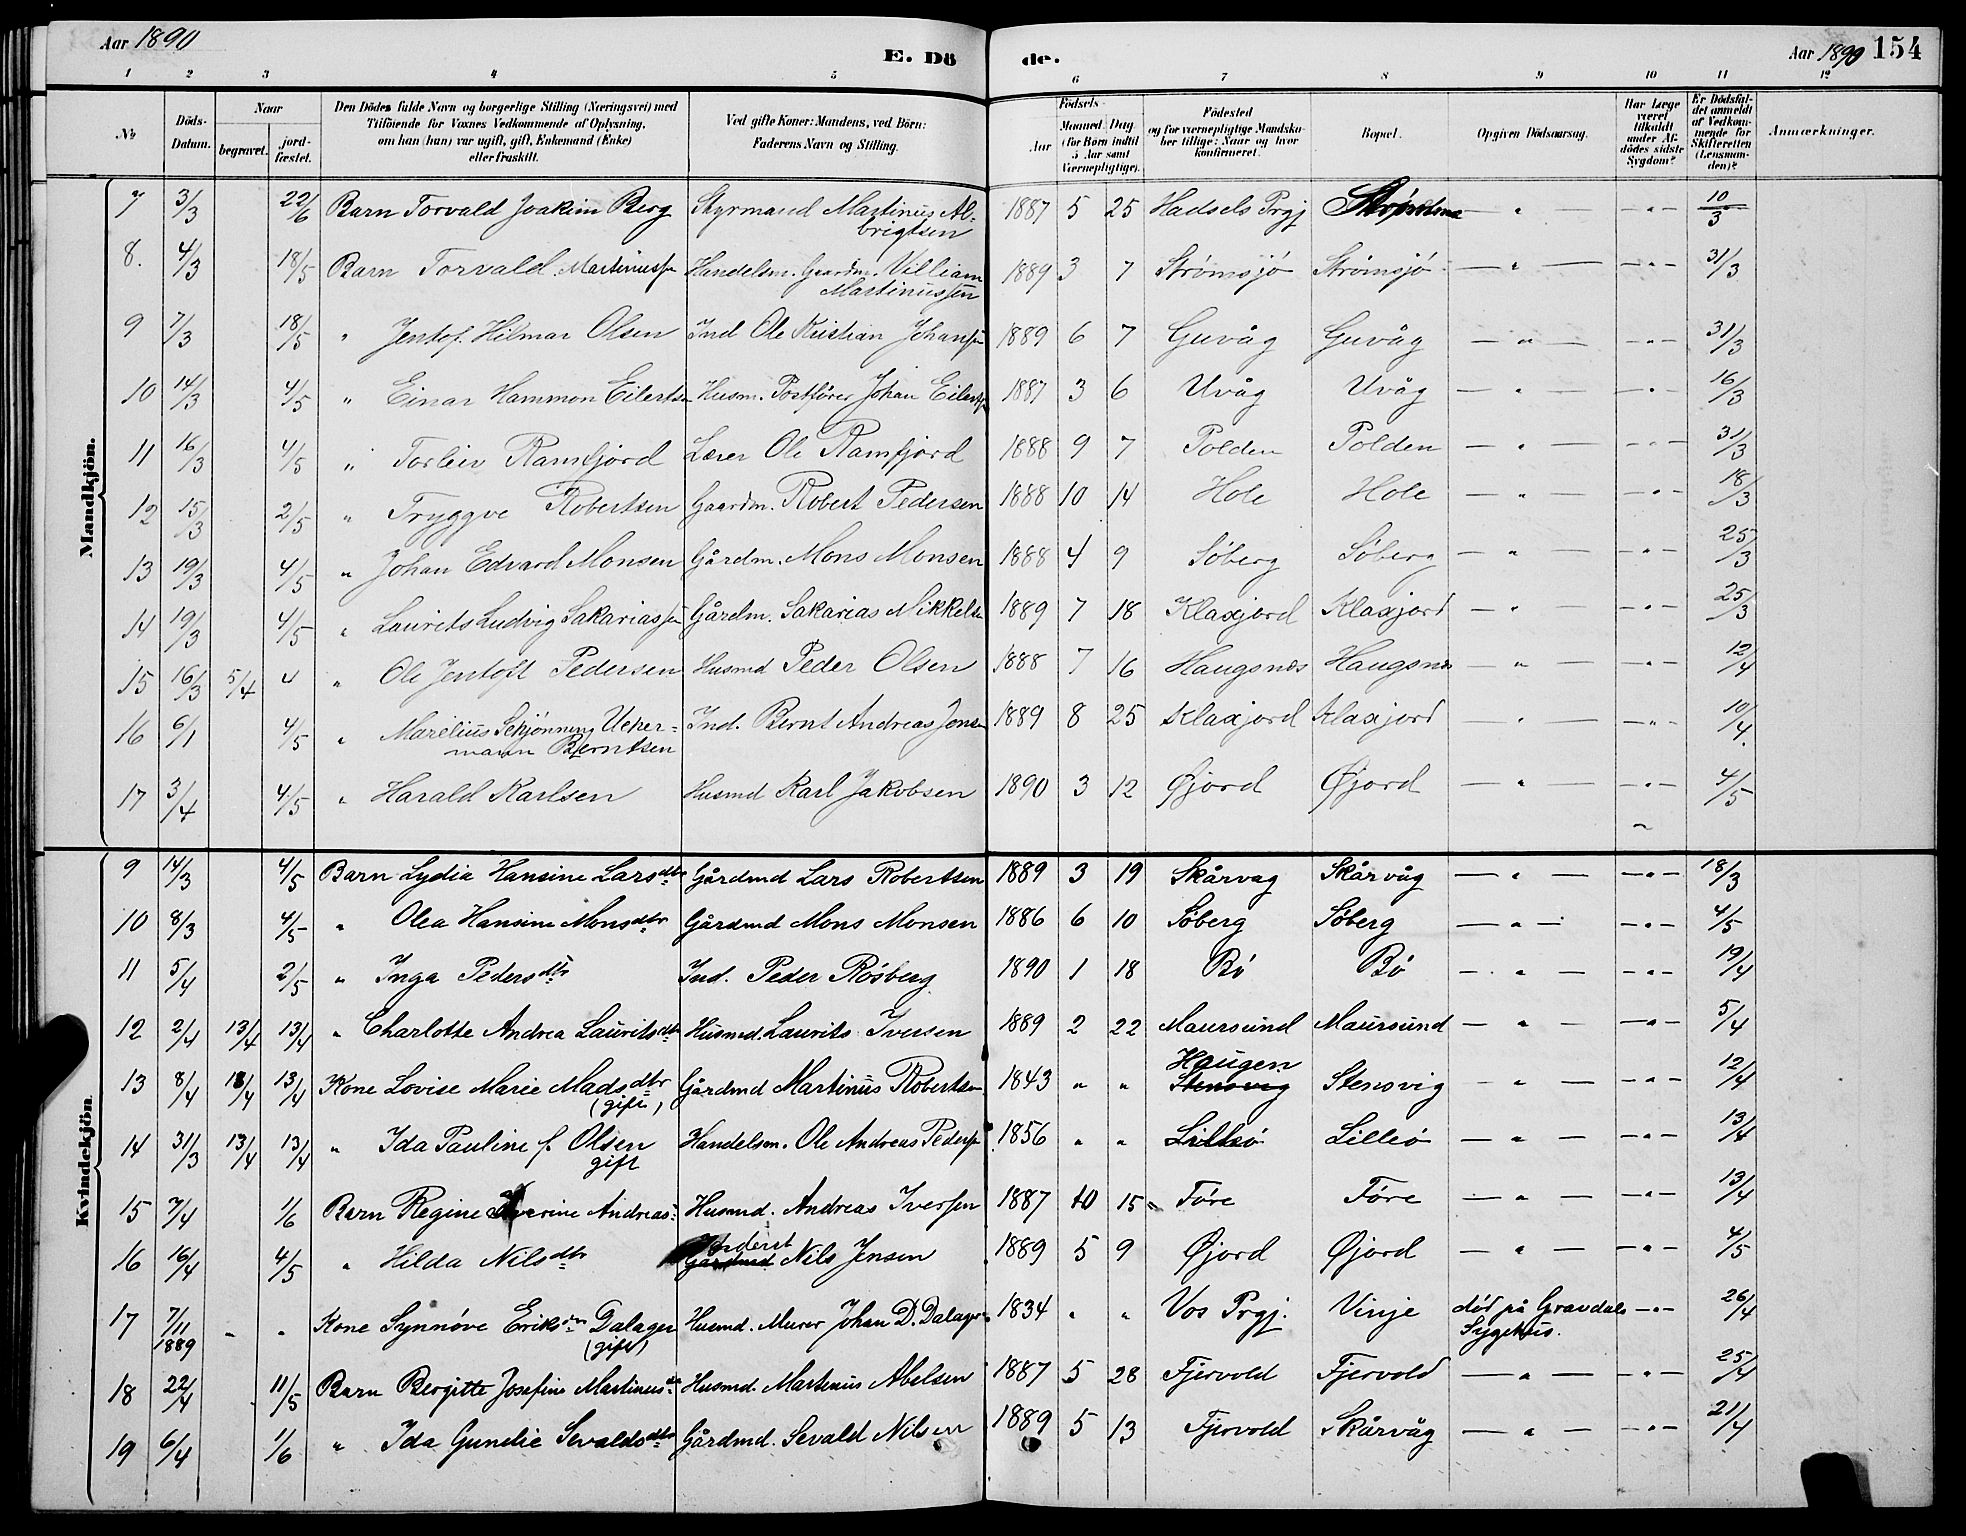 Aar 1890 E. Dö de. Aar 1890 154
1 2 3 4 5 6 7 8 9 10 11 12
No. Döds-Datum. Naar begravet. jord-fæstet. Den Dödes fulde Navn og borgerlige Stilling (Næringsvei) med Tilföiende for Voxnes Vedkommende af Oplysning, om han (hun) var ugift, gift, Enkemand (Enke) eller fraskilt. Ved gifte Koner: Mandens, ved Börn: Faderens Navn og Stilling. Födsels- Aar Maaned. Dag (for Börn indtil 5 Aar samt Værnepligtige). Födested og for værnepligtige Mandskaber tillige: Naar og hvor konfirmeret. Bopæl. Opgiven Dödsaarsag. Har Læge været tilkaldt under Afdödes sidste Sygdom? Er Dödsfaldet anmeldt af Vedkommende for Skifteretten (Lensmanden)? Anmærkninger.
Mandkjön.
7 3/3 22/6 Barn Torvald Joakim Berg Styrmand Martinus Al- 1887 5 25 Hadsels Prgj — " — — " — 10/3
brigtsen
8. 4/3 18/5 Barn Torvald Martinussen Handelsm. Gaardm. Villiam 1889 3 7 Strömsjö Strömsjö — " — — " — 31/3
Martinussen
9 7/3 18/5 " Jentof. Hilmar Olsen Ind Ole Kristian Johansen 1889 6 7 Guvåg Guvåg — " — — " — 31/3
10 14/3 4/5 " Einar Hammon Eilertsen Husm. Postförer Johan Eilertsen 1887 3 6 Uvåg Uvåg — " — — " — 16/3
11 16/3 4/5 " Torleiv Ramfjord Lærer Ole Ramfjord 1888 9 7 Polden Polden — " — — " — 31/3
12 15/3 2/5 " Tryggve Robertsen Gaardm. Robert Pedersen 1888 10 14 Hole Hole — " — — " — 18/3
13 19/3 4/5 " Johan Edvard Monsen Gårdm. Mons Monsen 1888 4 9 Söberg Söberg — " — — " — 25/3
14 19/3 4/5 " Laurits Ludvig Sakariassen Gårdm. Sakarias Mikkelsen 1889 7 18 Klaxjord Klaxjord — " — — " — 25/3
15 16/3 5/4 " " Ole Jentoft Pedersen Husmd Peder Olsen 1888 7 16 Haugsnæs Haugsnæs — " — — " — 12/4
16 6/1 4/5 " Marelius Schjönning Ucker- Ind. Bernt Andreas Jensen 1889 8 25 Klaxjord Klaxjord — " — — " — 10/4
mann Berntsen
17 3/4 4/5 " Harald Karlsen Husmd Karl Jakobsen 1890 3 12 Øjord Øjord — " — — " — 4/5
Kvindekjön
9 14/3 4/5 Barn Lydia Hansine Larsdtr Gårdmd Lars Robertsen 1889 3 19 Skårvag Skårvåg — " — — " — 18/3
10 8/3 4/5 " Olea Hansine Monsdtr Gårdmd Mons Monsen 1886 6 10 Söberg Söberg — " — — " — 4/5
11 5/4 2/5 " Inga Pedersdtr Ind. Peder Rösberg 1890 1 18 Bö Bö — " — — " — 19/4
12 2/4 13/4 13/4 " Charlotte Andrea Lauritsdtr Husmd. Laurits Iversen 1889 2 22 Maursund Maursund — " — — " — 5/4
Haugen
13 8/4 13/4 13/4 Kone Lovise Marie Madsdtr Gårdmd Martinus Robertsen 1843 " " Stensvig Stensvig — " — — " — 12/4
(gift)
14 31/3 13/4 13/4 " Ida Pauline f. Olsen Handelsm. Ole Andreas Pedersen 1856 " " Lilleö Lilleö — " — — " — 13/4
gift
15 7/4 1/6 Barn Regine Andreas Husmd. Andreas Iversen 1887 10 15 Före Före — " — — " — 13/4
Inderst
16 16/4 4/5 " Hilda Nilsdtr Gårdmd Nils Jensen 1889 5 9 Øjord Øjord — " — — " — 4/5
17 7/11 " " Kone Synnöve Eriksdtr Dalager Husmd. Murer Johan D. Dalager 1834 " " Vos Prgj. Vinje död på Gravdals — " — 26/4
1889 (gift) Sygehus.
18 22/4 11/5 Barn Bergitte Josefine Martinusdtr Husmd. Martinus Abelsen 1887 5 28 Fjervold Fjervold — " — — " — 25/4
19 6/4 1/6 " Ida Gundie Sevaldsdtr Gårdmd. Sevald Nilsen 1889 5 13 Fjervold Skårvåg — " — — " — 21/4